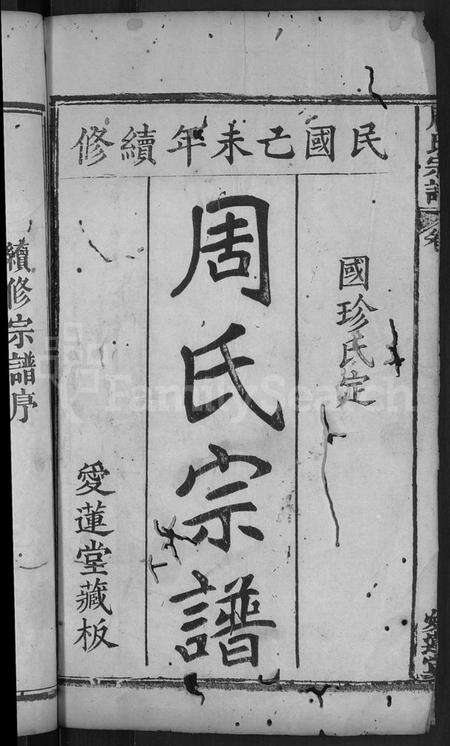 民國己未年續修
國珍氏定
周氏宗譜
愛蓮堂藏板
續修宗譜序
周氏宗譜
FamilySearch